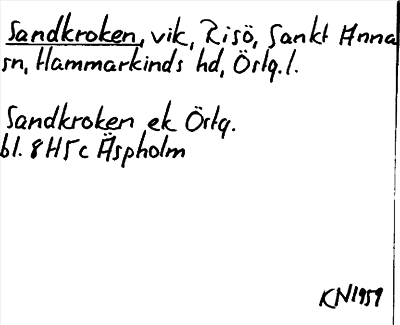 Sandkroken, vik, Risö, Sankt Anna
sn, Hammarkinds hd, Östg.l.
Sandkroken ek Östg.
bl. 8H5c Äspholm
KN1959